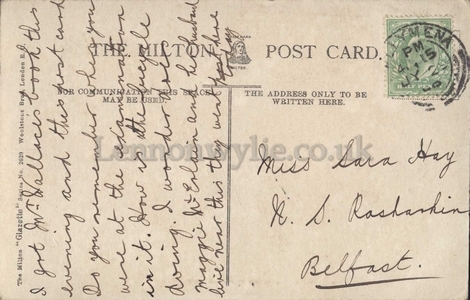 THE MILTON POST CARD.
FOR COMMUNICATION THIS SPACE
MAY BE USED.
ADDRESS ONLY TO BE
WRITTEN HERE.
The Milton "Glazette" Series No.
Woolstone Bros London E.C.
I got Mr Wallace's book this
evening and this post card
Do you remember when you
were at the
in it. How is the bicycle
doing. I wonder
Maggie and his husband
live near this they went past here
Miss Sara Hay
N. S. Rasharkin
Belfast.
BALLYMENA
PM
Lennonwylie.co.uk